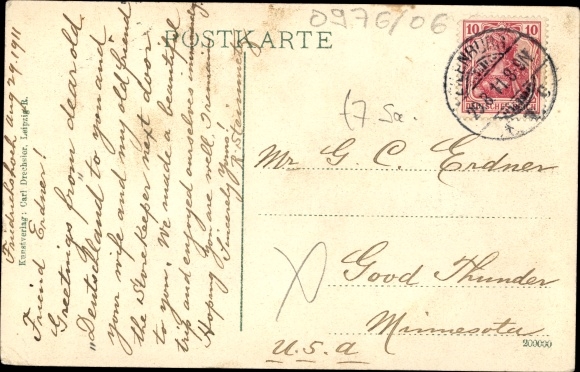 0976/06
POSTKARTE
10 10
(7 Sa.
Fridrichsroh, Aug 29, 1911
Freind Erdner!
Greetings from dear old
„Deutschland" to you and
your wife and my old friend
the Storekeeper next door
to you. We made a beautiful
trip and enjoyed ourselves immensely.
Hoping you are well. I remain
Sincerely Yours!
Mr G. C. Erdner
Good Thunder
Minnesota
U.S.A
Kunstverlag: Carl Drechsler, Leipzig-R.
200000